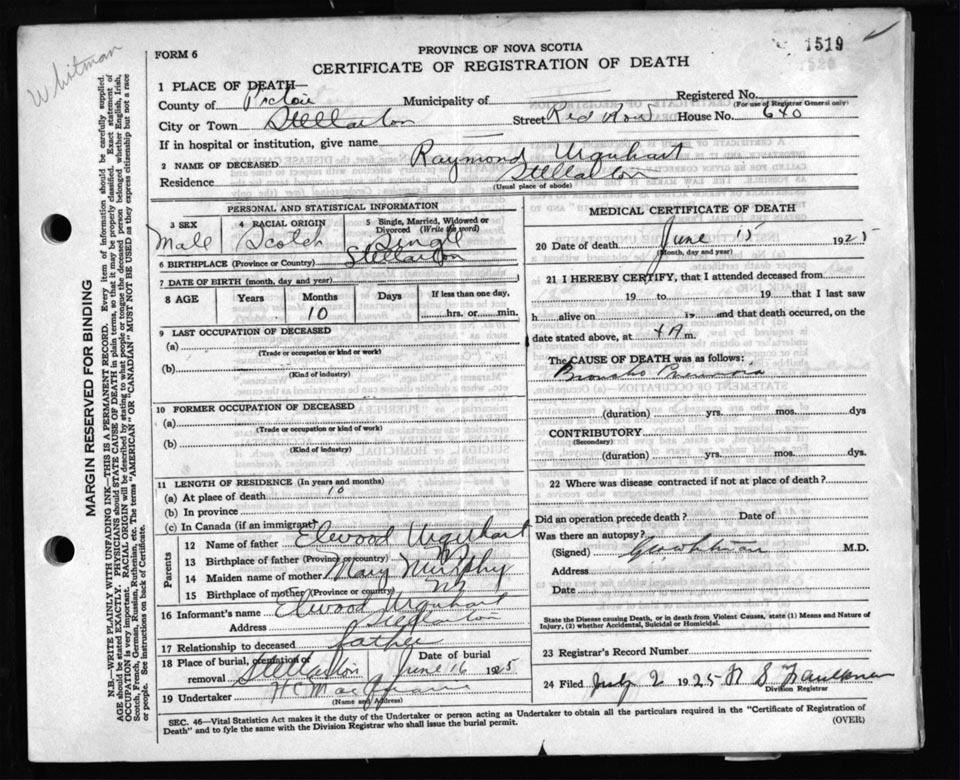 Whitman
FORM 6
PROVINCE OF NOVA SCOTIA
1519
CERTIFICATE OF REGISTRATION OF DEATH
1 PLACE OF DEATH—
County of Pictou Municipality of Registered No.
(For use of Registrar General only)
City or Town Stellarton Street Red Row House No. 640
If in hospital or institution, give name
2 NAME OF DECEASED Raymond Urquhart
Residence Stellarton
(Usual place of abode)
MARGIN RESERVED FOR BINDING
N.B.—WRITE PLAINLY WITH UNFADING INK—THIS IS A PERMANENT RECORD. Every item of information should be carefully supplied.
AGE should be stated EXACTLY. PHYSICIANS should STATE CAUSE OF DEATH in plain terms, so that it may be properly classified. Exact statement of
OCCUPATION is very important. RACIAL ORIGIN will be described by stating to what people or tongue the deceased person belonged whether English, Irish,
Scotch, French, German, Russian, Ruthenian, etc. The terms "AMERICAN" OR "CANADIAN" MUST NOT BE USED as they express citizenship but not a race
or people. See instructions on back of Certificate.
PERSONAL AND STATISTICAL INFORMATION
3 SEX
Male
4 RACIAL ORIGIN
Scotch
5 Single, Married, Widowed or
Divorced (Write the word)
Single
6 BIRTHPLACE (Province or Country) Stellarton
7 DATE OF BIRTH (month, day and year)
8 AGE Years Months Days If less than one day,
10 hrs. or min.
9 LAST OCCUPATION OF DECEASED
(a)
(Trade or occupation or kind or work)
(b)
(Kind of industry)
10 FORMER OCCUPATION OF DECEASED
(a)
(Trade or occupation or kind of work)
(b)
(Kind of industry)
11 LENGTH OF RESIDENCE (In years and months)
(a) At place of death 10
(b) In province
(c) In Canada (if an immigrant)
Parents
12 Name of father Elwood Urquhart
13 Birthplace of father (Province or country)
14 Maiden name of mother Mary Murphy
15 Birthplace of mother (Province or country)
16 Informant's name Elwood Urquhart
Address Stellarton
17 Relationship to deceased father
18 Place of burial, cremation or Date of burial
removal Stellarton June 16 1925
19 Undertaker
(Name and Address)
MEDICAL CERTIFICATE OF DEATH
20 Date of death June 15 1925
(Month, day and year)
21 I HEREBY CERTIFY, that I attended deceased from
19 to 19 that I last saw
h alive on 19 and that death occurred, on the
date stated above, at m.
The CAUSE OF DEATH was as follows:
Broncho
(duration) yrs. mos. dys
CONTRIBUTORY
(Secondary)
(duration) yrs. mos. dys.
22 Where was disease contracted if not at place of death?
Did an operation precede death? Date of
Was there an autopsy?
(Signed) M.D.
Address
Date
State the Disease causing Death, or in death from Violent Causes, state (1) Means and Nature of
Injury, (2) whether Accidental, Suicidal or Homicidal.
23 Registrar's Record Number
24 Filed July 2 1925 Faulkner
Division Registrar
SEC. 46—Vital Statistics Act makes it the duty of the Undertaker or person acting as Undertaker to obtain all the particulars required in the "Certificate of Registration of
Death" and to fyle the same with the Division Registrar who shall issue the burial permit.
(OVER)